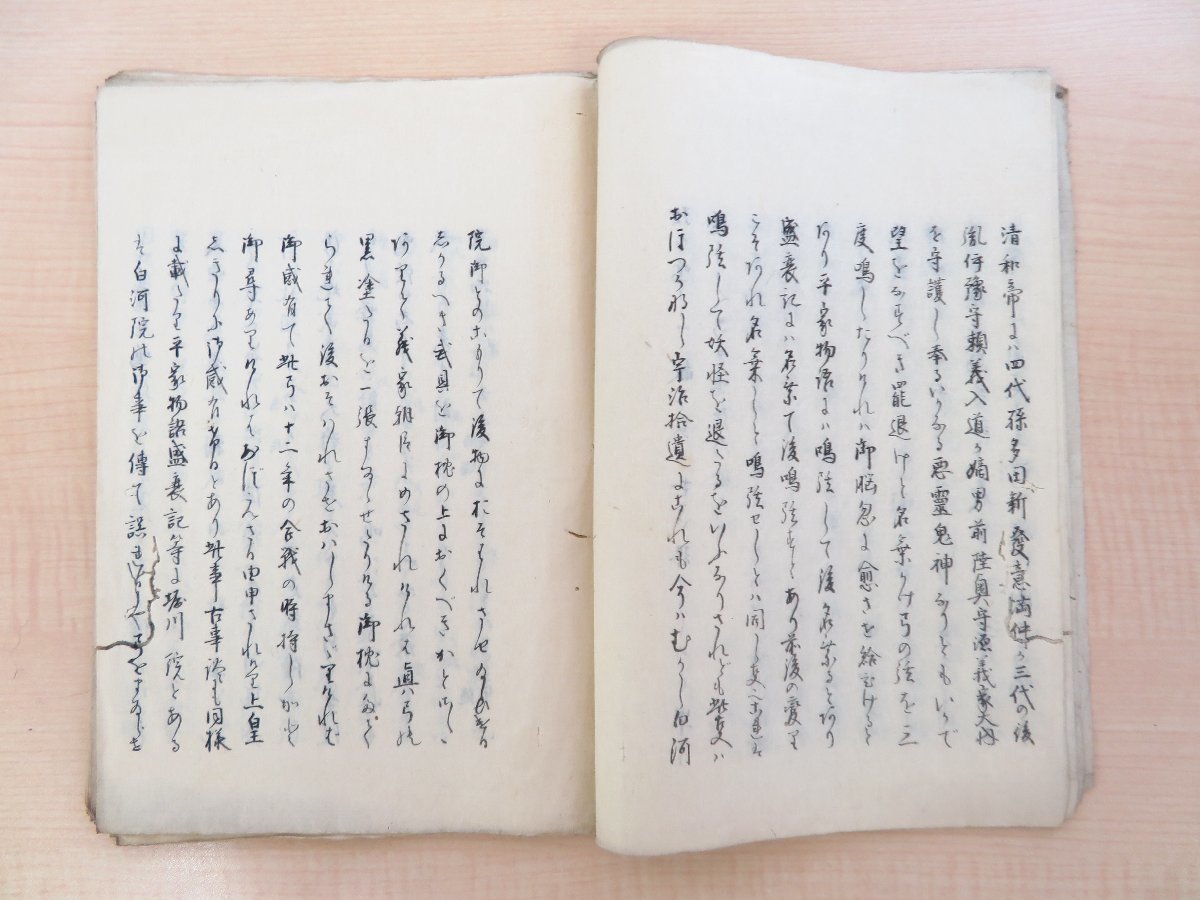 清和帝には四代孫多田新發意満仲が三代の後
胤伊豫守頼義入道が嫡男前陸奥守源義家大内
を守護し奉るいかなる悪霊鬼神なりともいかで
望をなすべき罷退けと名乗かけ弓の弦を三
度鳴したりければ御脳忽に愈させ給ひけると
あり平家物語には鳴弦して後名乗るとあり
盛衰記には名乗て後鳴弦すとあり前後の変り
こそあれ名乗しと鳴弦せしとは同し
鳴弦して妖怪を退くるをいふなりされども此変は
おほつかなし宇治拾遺にこれも今はむかし白河
院御とのこもりて後物におそはれさせ給ひける
しかるへき武具を御枕の上におくべきかと
ありて義家朝臣にめされければ真弓の
黒塗なるを一張まゐらせたりける御枕にたて
られて後おそはれさせおはしまさざりければ
御感有て此弓は十二年の合戦の時持しかと
御尋ありければおぼえざる由申されけり上皇
しきりに御感有けるとあり此事古事談も同様
に載たり平家物語盛衰記等に堀川院とある
は白河院の御事を傳て誤も